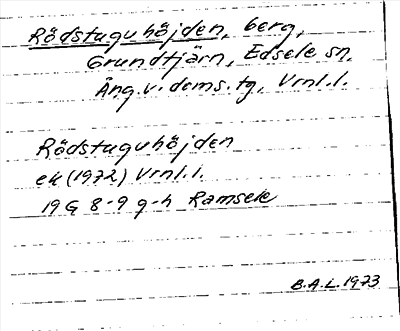 Rödstuguhöjden, berg,
Grundtjärn, Edsele sn.
Ång.v. doms. tg, Vrnl.l.
Rödstuguhöjden
ek (1972) Vrnl.l.
19G 8-9 g-h Ramsele
B.A.L. 1973